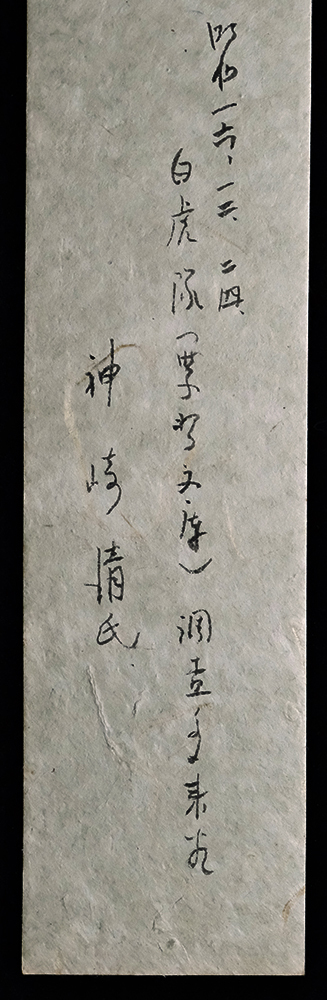 昭和一六、一二、二四、
白虎隊(栗林文庫)調査ノ為来光
神崎清氏